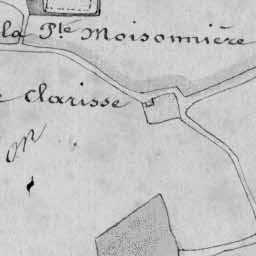 la Pte Moisonnière
e Clarisse
on